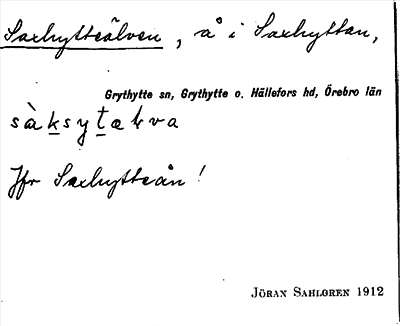 Saxhytteälven, å i Saxhyttan,
Grythytte sn, Grythytte o. Hällefors hd, Örebro län
sàksytælva
Jfr Saxhytteån!
JÖRAN SAHLGREN 1912